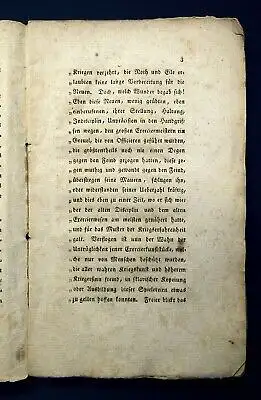 3
„Kriegen verzehrt, die Noth und Eile er-
„laubten keine lange Vorbereitung für die
„Neuen. Doch, welch Wunder begab sich!
„Eben diese Neuen, wenig geübten, eben
„einberufenen, ihrer Stellung, Haltung,
„Indisciplin, Unpräcision in den Handgrif-
„fen wegen, den großen Exerciermeistern ein
„Greuel, die von Officieren geführt wurden,
„die größtentheils noch nie einen Degen
„gegen den Feind gezogen hatten, diese gin-
„gen muthig und gewandt gegen den Feind,
„überstiegen seine Mauern, schlugen ihn,
„oder widerstanden seiner Ueberzahl kräftig,
„und dies eben zu einer Zeit, wo er sich wie-
„der der alten Disciplin und dem alten
„Exercierwesen am meisten genähert hatte,
„und für das Muster der Kriegserfahrenheit
„galt. Verflogen ist nun der Wahn der
„Untrüglichkeit jener Exercierkunststücke, wel-
„che nur von Menschen beschützt wurden,
„die aller wahren Kriegskunst und höherem
„Kriegersinn fremd, in sklavischer Kopeiung
„oder Ausbildung dieser Spielereien etwas
„zu gelten hoffen konnten. Freier blickt das